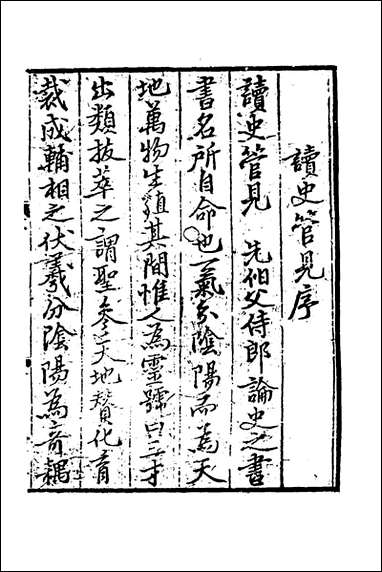 讀史管見序
讀史管見先伯父侍郎論史之書
書名所自命也一氣分陰陽而為天
地萬物生殖其間惟人為靈號曰三才
出類拔萃之謂聖參天地贊化育
裁成輔相之伏羲分陰陽為奇耦